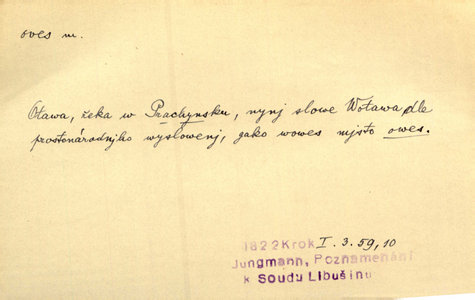 oves m.
Otawa, řeka w Prachynsku, nynj slowe Wotawa dle
prostonárodnjho wyslowenj, gako wowes mjsto owes.
1822 Krok I. 3. 59, 10
Jungmann, Poznamenání
k Soudu Libušinu